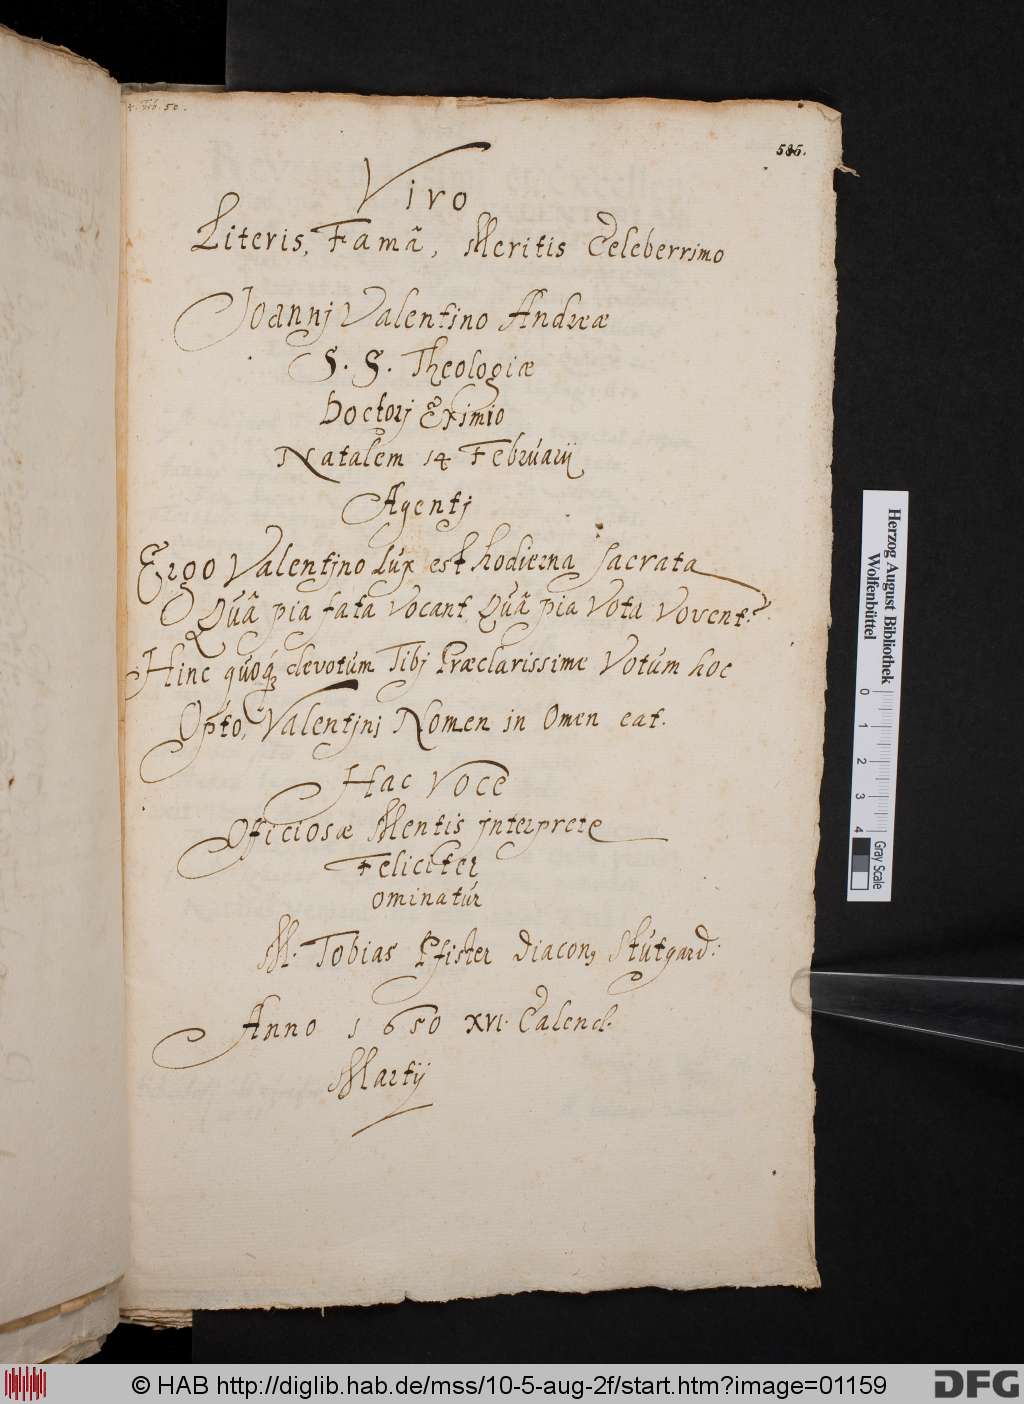 4. Feb. 50.
585.
Viro
Literis, Famâ, Meritis Celeberrimo
Joannj Valentino Andreæ
S. S. Theologiæ
Doctorj Eximio
Natalem 14 Februarij
Agentj
Ergo Valentjno Lux est hodierna sacrata
Quâ pia fata vocant, Quâ pia Vota Vovent?
Hinc quoq́ꝫ devotum Tibj Præclarissime Votum hoc
Opto, Valentjnj Nomen in Omen eat.
Hac Voce
Officiosæ Mentis jnterprete
Feliciter
ominatur
M. Tobias Pfister Diacon9 Stutgard:
Anno 1650 XVI. Calend.
Martij
Herzog August Bibliothek
Wolfenbüttel
0 1 2 3 4
Gray Scale
© HAB http://diglib.hab.de/mss/10-5-aug-2f/start.htm?image=01159
DFG